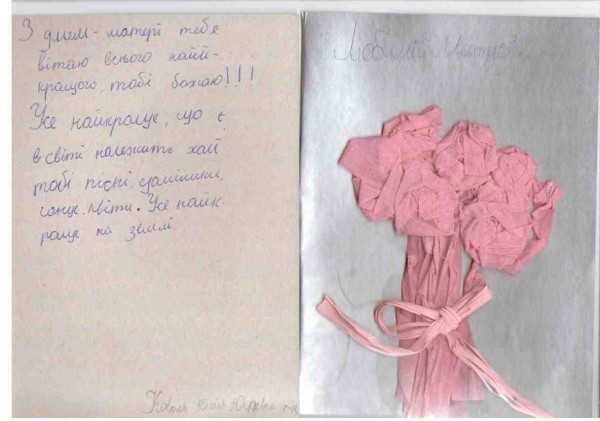 З днем-матері тебе
вітаю всього найй-
кращого, тобі бажаю!!!
Усе найкраще, що є
в світі належить хай
тобі пісні, усмішки,
сонце. квіти. Усе найк-
раще на землі.
Коваль Юлія
Любимій